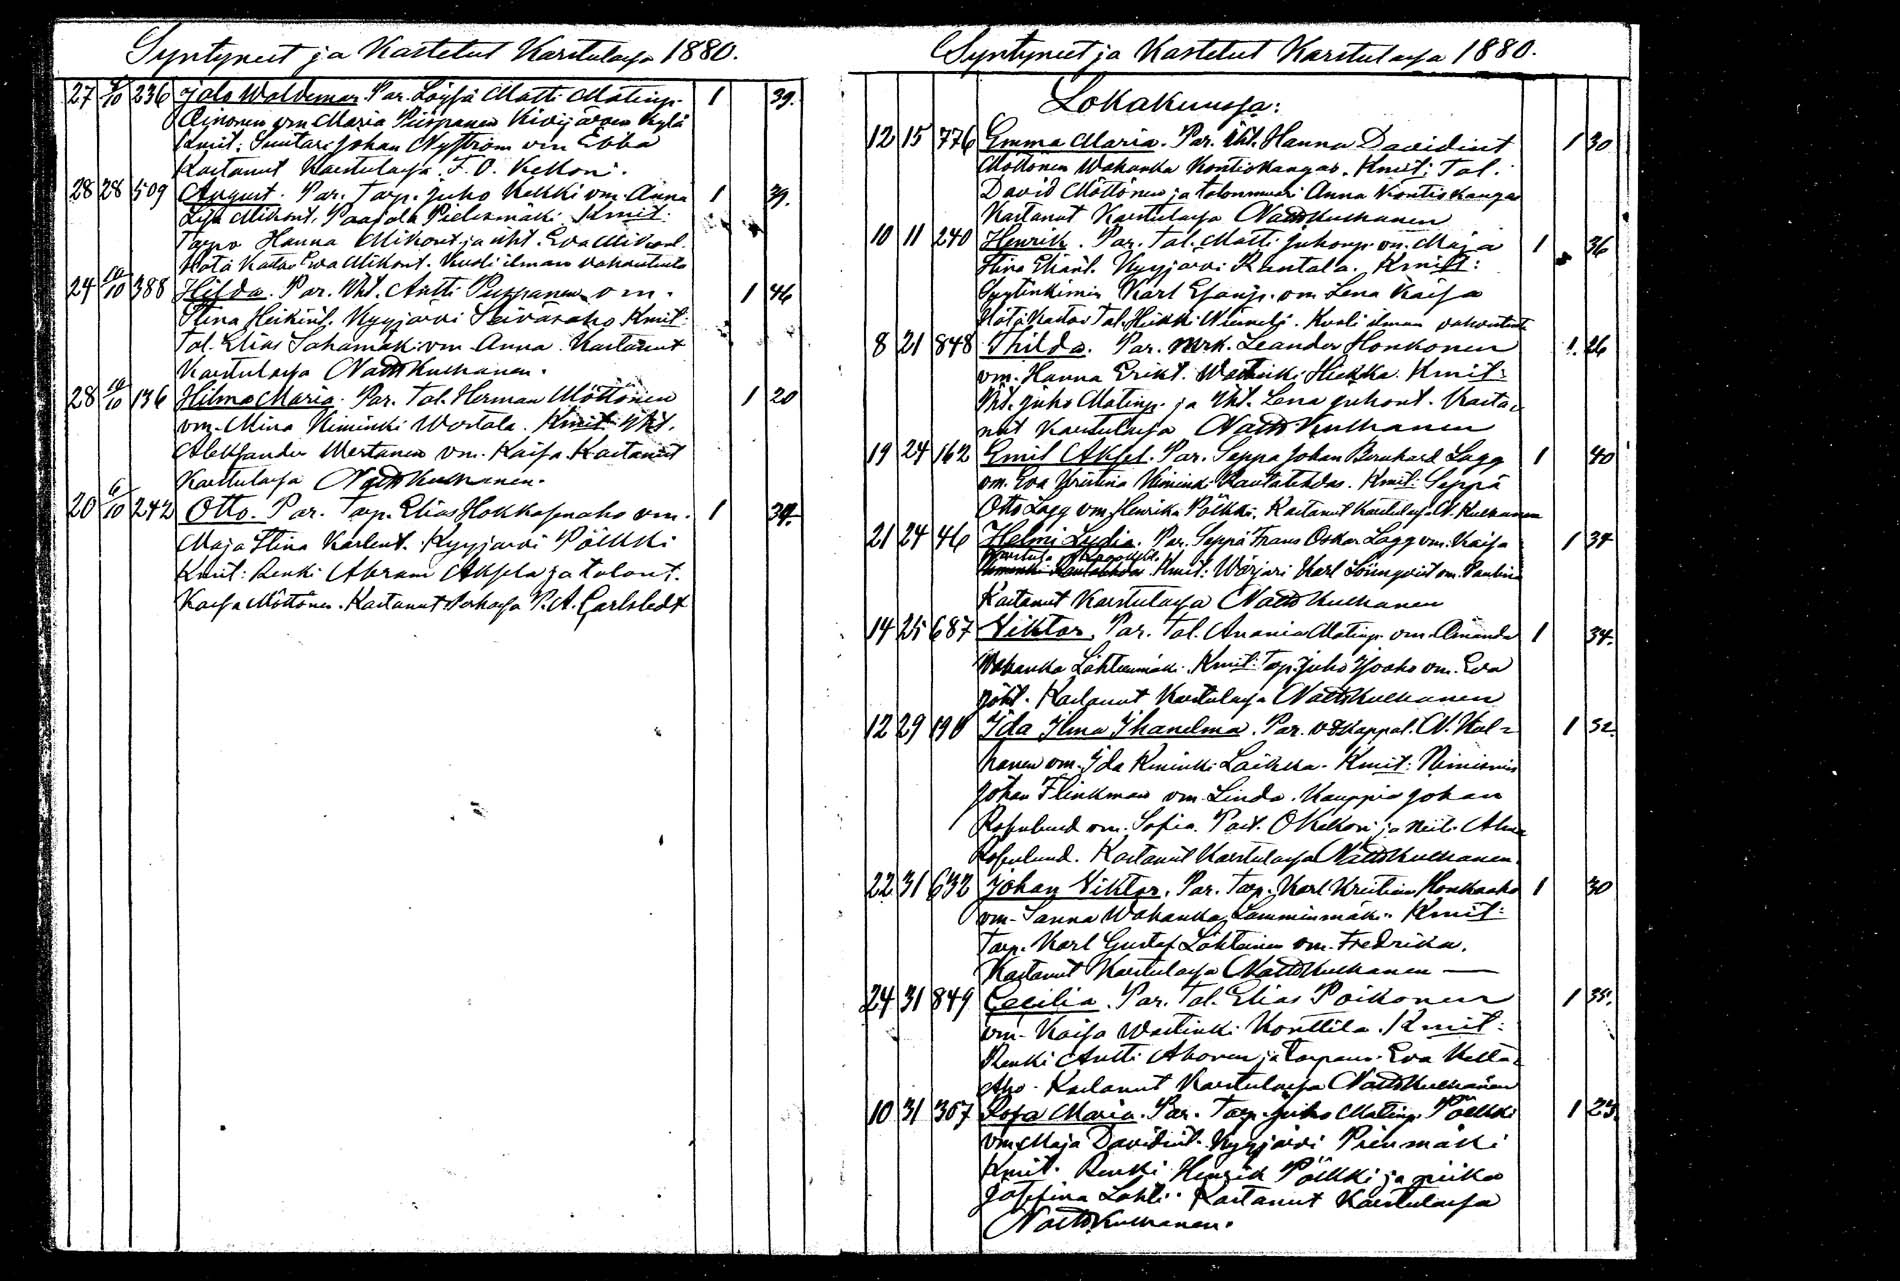 Syntyneet ja Kastetut Karstulassa 1880.
27 9/10 236 Jalo Waldemar. Par. Matti Matinp. 1 39.
Ainonen vm Maria Piispanen Kivijärven kylä
Kmit. Suutari Johan Nyström vm Ebba
Kastanut Karstulassa F. O. Kekoni.
28 28 509 August. Par. Torp. Juho Kekki vm. Anna 1 39.
Liisa Mikont. Paajala Pieliksmäki. Kmit:
Torpp. Hanna Mikont. ja itst. Eva Mikont.
Hätä Kastoi Eva Mikont. Kuoli ilman vahvistusta
24 10/10 388 Hilda. Par. Itst. Antti Piispanen vm. 1 46
Stina Heikint. Kyyjärvi Seivasaho Kmit:
Tal. Elias Sahamäki vm. Anna. Kastanut
Karstulassa Natt Kulhanen.
28 10/10 136 Hilma Maria. Par. Tal. Herman Möttönen 1 20
vm. Mina Kiminki Wastala. Kmit: Itst.
Aleksander Mertanen vm. Kaisa. Kastanut
Karstulassa Natt Kulhanen.
20 6/10 242 Otto. Par. Torp. Elias Hokkasenaho vm. 1 34.
Maja Stina Karlent. Kyyjärvi Pölkki
Kmit: Renki Abram Aksela ja talont.
Kaisa Möttönen. Kastanut P. A. Carlstedt
Syntyneet ja Kastetut Karstulassa 1880.
Lokakuussa:
12 15 776 Emma Maria. Par. itst. Hanna Davidint 1 30
Möttönen Wahanka Kontiskangas. Kmit: Tal.
David Möttönen ja talonemäntä Anna Kontiskangas
Kastanut Karstulassa Natt Kulhanen
10 11 240 Henrik. Par. Tal. Matti Juhonp. vm. Maja 1 36
Stina Eliant. Kyyjärvi Rantala. Kmit:
Karl vm. Lena Kaisa
Hätä Kastoi Tal. Heikki Niemelä. Kuoli ilman vahvistusta
8 21 848 Thilda. Par. Mrk. Leander Honkonen 1. 26
vm. Hanna Erikt. Wastinki Hiekka. Kmit:
Itst. Juho Matinp. ja Itst. Lena Juhont. Kasta-
nut Karstulassa Natt Kulhanen
19 24 162 Emil Aksel. Par. Seppä Johan Bernhard Lagg 1 40
vm. Eva Kristina Kiminki Rautatehdas. Kmit: Seppä
Otto Lagg vm. Henrika Pölkki. Kastanut Karstulassa N. Kulhanen
21 24 46 Helmi Lydia. Par. Seppä Frans Oskar Lagg vm. Kaisa 1 34
Kiminki Rautatehdas. Kmit: Wärjäri Karl Lönnqvist vm. Paulina
Kastanut Karstulassa Natt Kulhanen
14 25 687 Viktor. Par. Tal. Anania Matinp. vm. Amanda 1 34.
Wahanka Lähteenmäki. Kmit: Torp. Juho vm. Eva
Joht. Kastanut Karstulassa Natt Kulhanen
12 29 190 Ida Ilma Ihanelma. Par. v. kappal. N. Kul- 1 32.
hanen vm. Ida Kiminki Laikka. Kmit: Nimismies
Johan Flinkman vm. Linda. Kauppias Johan
Rosenlund vm. Sofia. Past. O Kekoni ja Neiti Alma
Rosenlund. Kastanut Karstulassa Natt Kulhanen.
22 31 632 Johan Viktor. Par. Torp. Karl Kristian Honkaaho 1 30
vm. Sanna Wahanka Lamminmäki. Kmit:
Torp. Karl Gustaf Lähteinen vm. Fredrika.
Kastanut Karstulassa Natt Kulhanen
24 31 849 Cecilia. Par. Tal. Elias Poikonen 1 35.
vm. Kaisa Wastinki Konttila. Kmit:
Renki Antti Ahonen ja Torpan. Eva Kelta-
Aho. Kastanut Karstulassa Natt Kulhanen
10 31 307 Rosa Maria. Par. Torp. Juho Matinp. Pölkki 1 23.
vm. Maja Davidint. Kyyjärvi Pienmäki
Kmit. Renki Henrik Pölkki ja piika
Josefina Lahti. Kastanut Karstulassa
Natt Kulhanen.